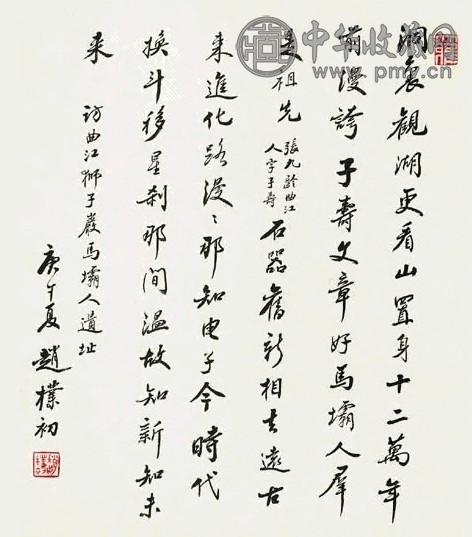 中华收藏网
洞裏觀湖更看山置身十二萬年
前漫誇子壽文章好馬壩人羣
是祖先張九齡曲江
人字子壽石器舊新相去遠古
來進化路漫〻那知电子今時代
換斗移星刹那間溫故知新知未
来
訪曲江獅子巖馬壩人遺址
庚午夏 趙樸初